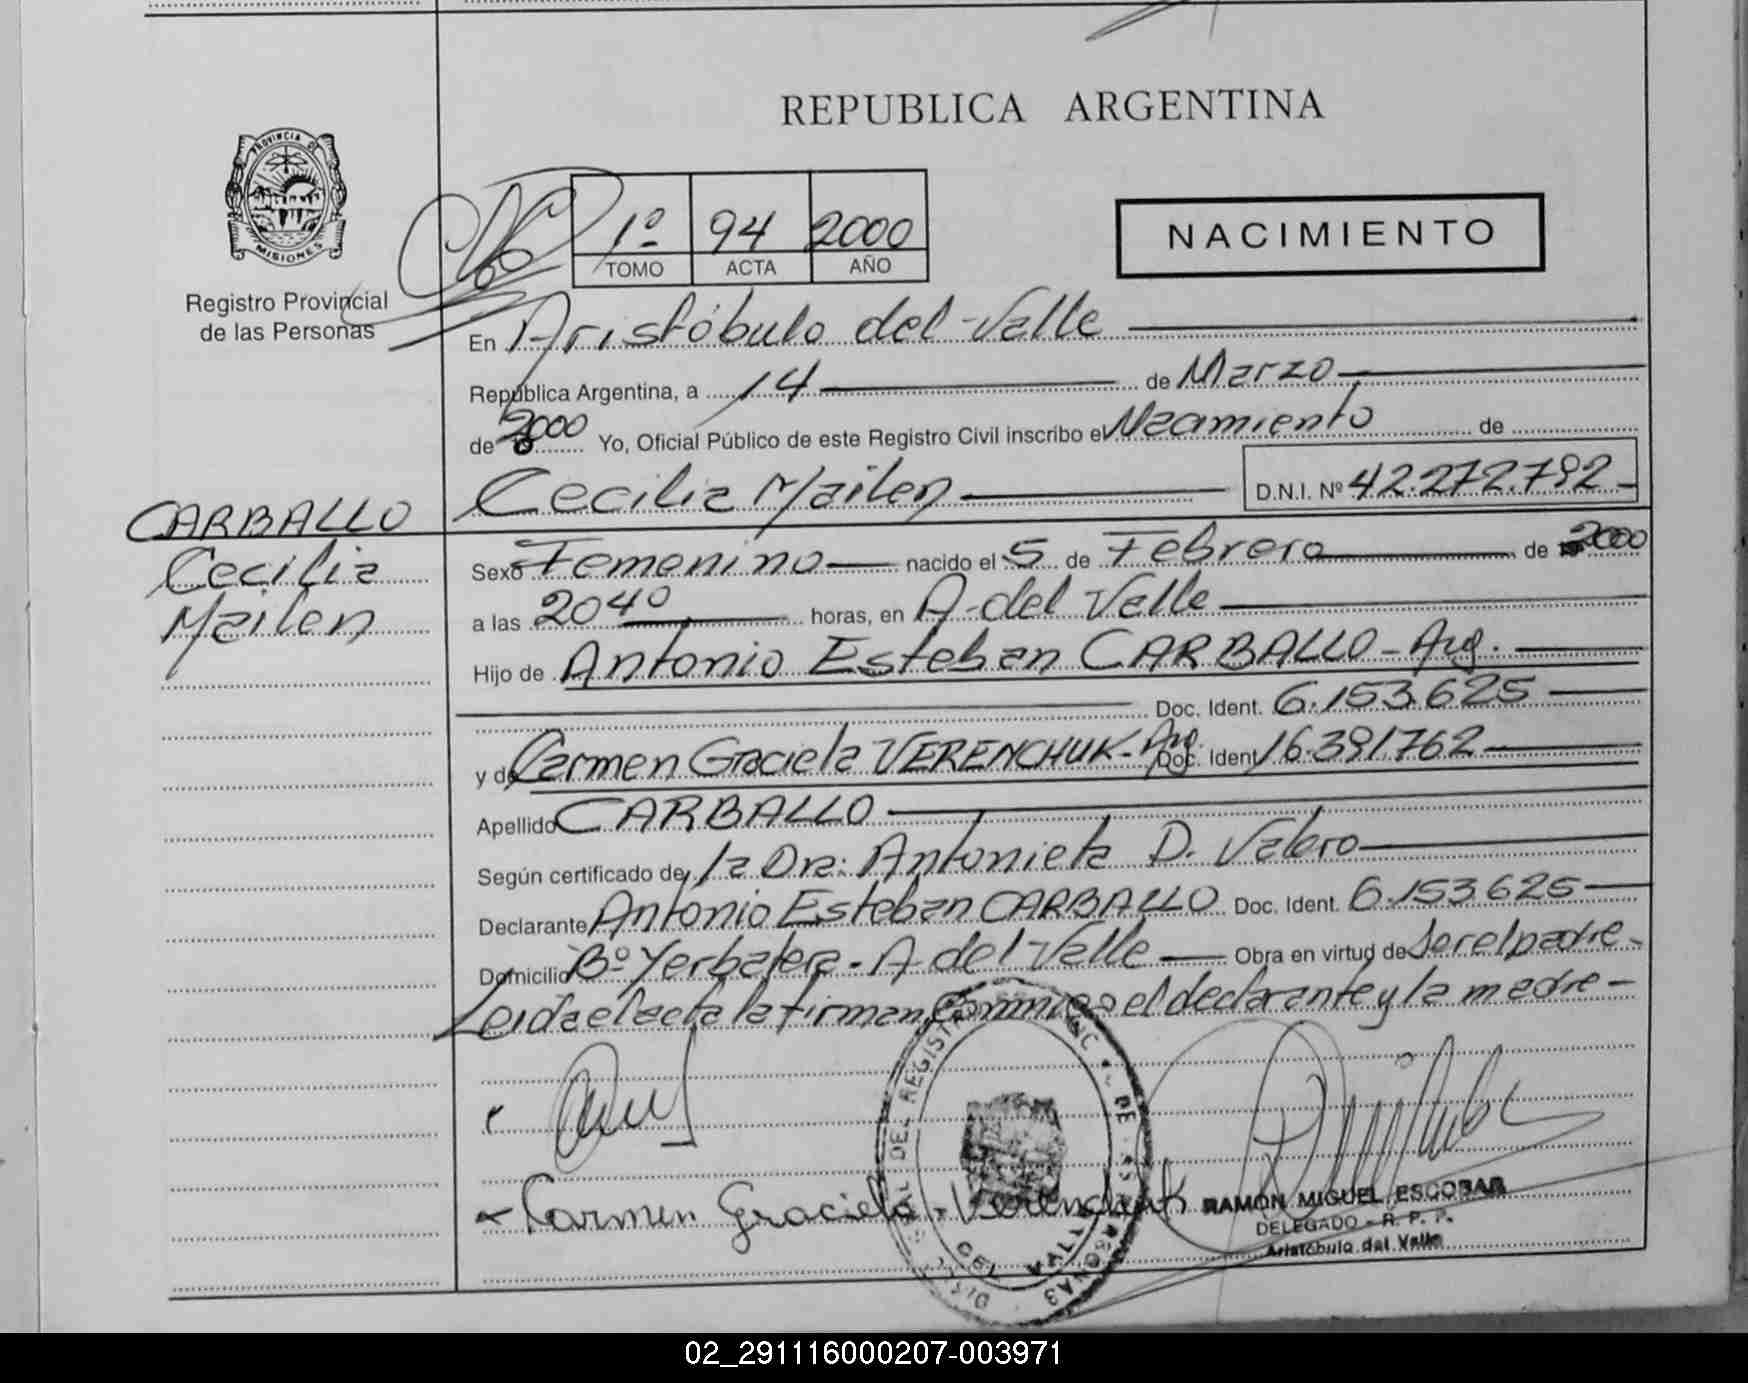 REPUBLICA ARGENTINA
PROVINCIA DE
MISIONES
Registro Provincial
de las Personas
1º 94 2000
TOMO ACTA AÑO
NACIMIENTO
En Aristóbulo del Valle
República Argentina, a 14 de Marzo
de 2000 Yo, Oficial Público de este Registro Civil inscribo el Nacimiento de
Cecilia Mailen D.N.I. Nº 42.272.792
CARBALLO
Cecilia
Mailen
Sexo Femenino nacido el 5 de Febrero de 2000
a las 20 40 horas, en A. del Valle
Hijo de Antonio Esteban CARBALLO - Arg.
Doc. Ident. 6.153.625
y de Carmen Graciela VERENCHUK - Arg. Doc. Ident 16.391.762
Apellido CARBALLO
Según certificado de la Dra: Antonieta D. Valero
Declarante Antonio Esteban CARBALLO Doc. Ident. 6.153.625
Domicilio Bº Yerbatera - A. del Valle Obra en virtud de ser el padre -
Leida el acta la firman conmigo el declarante y la madre -
Carmen Graciela Verenchuk
RAMON MIGUEL ESCOBAR
DELEGADO - R. P. P.
Aristóbulo del Valle
02_291116000207-003971